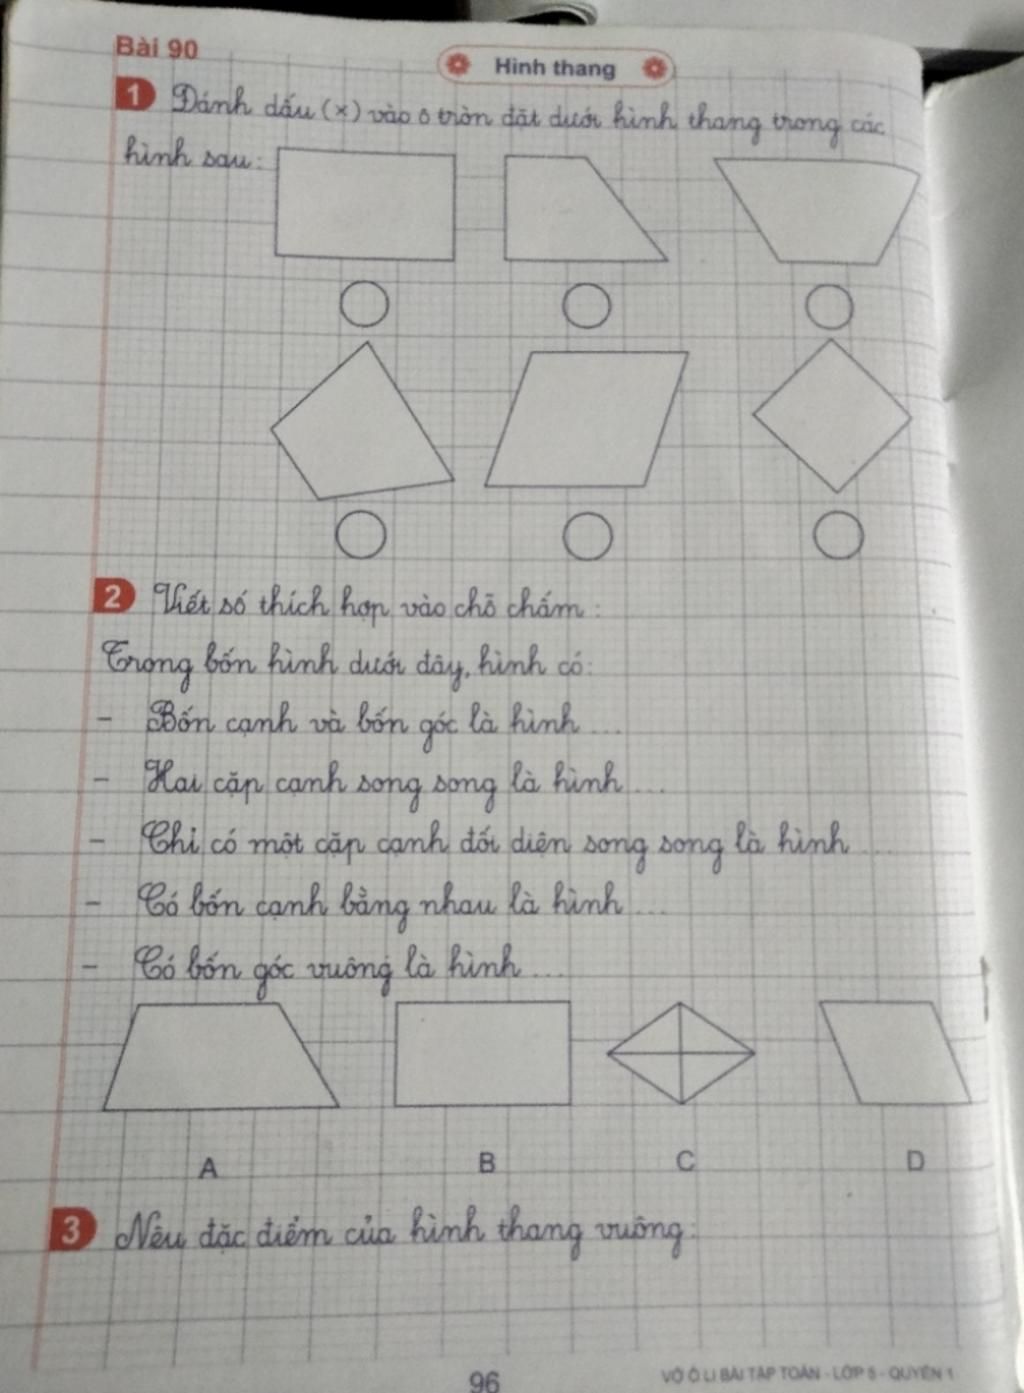 Bài 90
Hình thang
1 Đánh dấu (x) vào ô tròn đặt dưới hình thang trong các
hình sau:
2 Viết số thích hợp vào chỗ chấm:
Trong bốn hình dưới đây, hình có:
- Bốn cạnh và bốn góc là hình ...
- Hai cặp cạnh song song là hình ...
- Chỉ có một cặp cạnh đối diện song song là hình ...
- Có bốn cạnh bằng nhau là hình ...
- Có bốn góc vuông là hình ...
A B C D
3 Nêu đặc điểm của hình thang vuông:
96 VỞ Ô LI BÀI TẬP TOÁN - LỚP 5 - QUYỂN 1